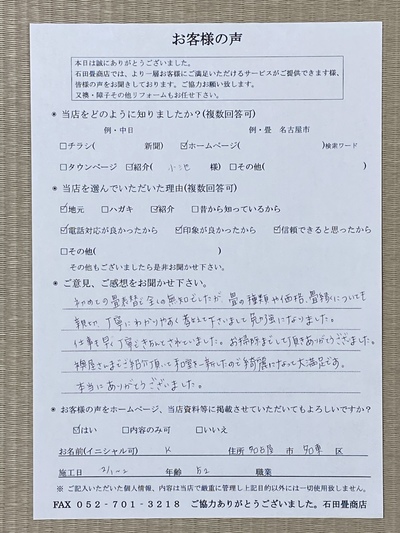 お客様の声
本日は誠にありがとうございました。
石田畳商店では、より一層お客様にご満足いただけるサービスがご提供できます様、
皆様の声をお聞きしております。ご協力お願い致します。
又襖・障子その他リフォームもお任せ下さい。
* 当店をどのように知りましたか？(複数回答可)
例・中日 例・畳 名古屋市
□チラシ( 新聞) ☑ホームページ( )検索ワード
□タウンページ ☑紹介( 様) □その他( )
* 当店を選んでいただいた理由(複数回答可)
☑地元 □ハガキ ☑紹介 □昔から知っているから
☑電話対応が良かったから ☑印象が良かったから ☑信頼できると思ったから
□その他( )
その他もございましたら是非お聞かせ下さい。
* ご意見、ご感想をお聞かせ下さい。
初めての畳表替で全くの無知でしたが、畳の種類や価格、畳縁についても
親切、丁寧にわかりやすく教えて下さいまして勉強になりました。
仕事も早く丁寧できちんとされていました。お掃除までして頂きありがとうございました。
襖屋さんまでご紹介頂いて和室を一新したので綺麗になって大満足です。
本当にありがとうございました。
* お客様の声をホームページ、当店資料等に掲載させていただいてもよろしいですか？
☑はい □内容のみ可 □いいえ
お名前(イニシャル可) K 住所 名古屋 市 名東 区
施工日 2/1~2 年齢 52 職業
※ ご記入いただいた個人情報、内容は当店で厳重に管理し上記目的以外には一切使用致しません。
FAX 052-701-3218 ご協力ありがとうございました。石田畳商店